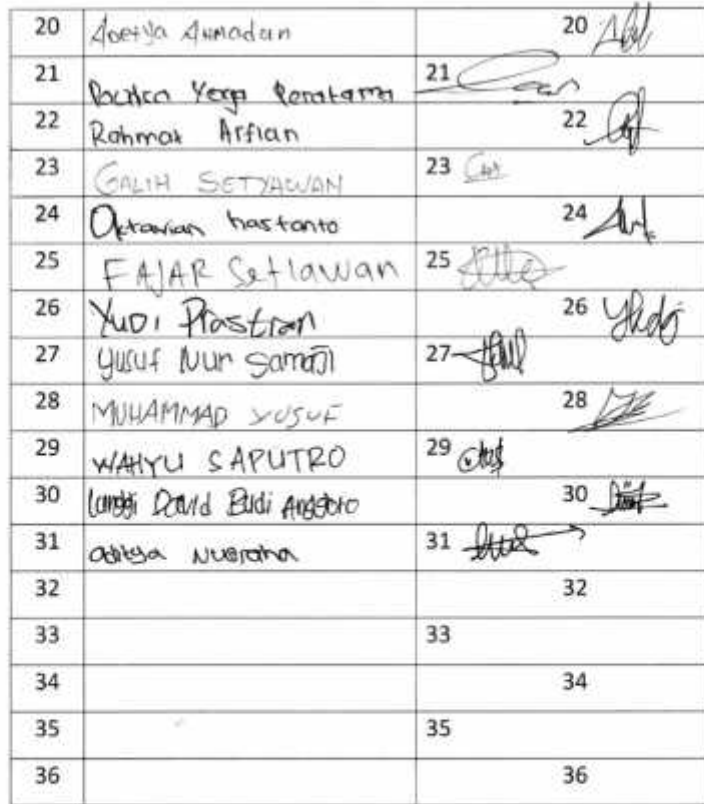 20 Adetya Ahmadan 20
21 Yoga Peratama 21
22 Rahmat Arfian 22
23 GALIH SETYAWAN 23
24 Oktavian hastanto 24
25 FAJAR Setiawan 25
26 YUDI Prastian 26
27 Yusuf Nur Samaji 27
28 MUHAMMAD YUSUF 28
29 WAHYU SAPUTRO 29
30 David Budi Anggoro 30
31 aditya Nugraha 31
32 32
33 33
34 34
35 35
36 36